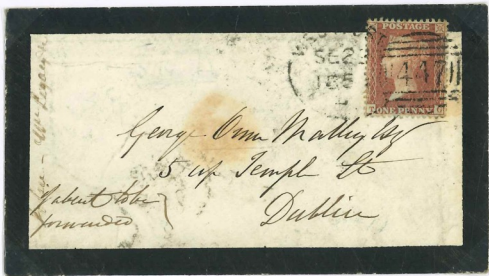 POSTAGE
ONE PENNY
447
SE 2
George Orme Malley Esq
5 up Templ St
Dublin
if absent to be
forwarded